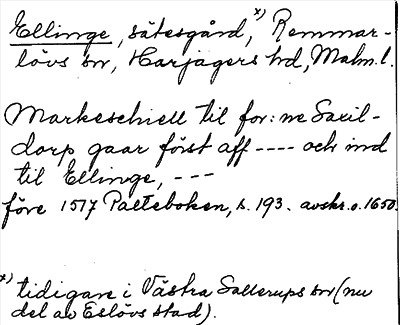 Ellinge, sätesgård, x) Remmar-
lövs sn, Harjagers hd, Malm.l.
Markeschiell til for:ne Saxil-
dorp gaar först aff ---- och ind
til Ellinge, ---
före 1517 Palteboken, s. 193. avskr. o. 1650.
x) tidigare i Västra Sallerups sn (nu
del av Eslövs stad).